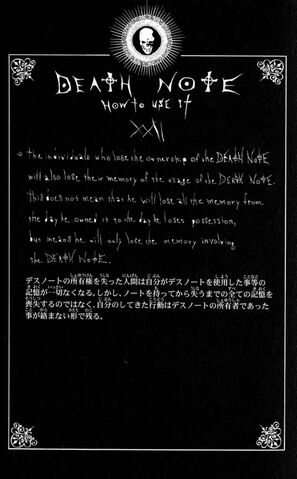 DEATH NOTE
HOW TO USE IT
XXII
○ The individuals who lose the ownership of the DEATH NOTE
will also lose their memory of the usage of the DEATH NOTE.
This does not mean that he will lose all the memory from
the day he owned it to the day he loses possession,
but means he will only lose the memory involving
the DEATH NOTE.
デスノートの所有権を失った人間は自分がデスノートを使用した事等の
記憶が一切なくなる。しかし、ノートを持ってから失うまでの全ての記憶を
喪失するのではなく、自分のしてきた行動はデスノートの所有者であった
事が絡まない形で残る。